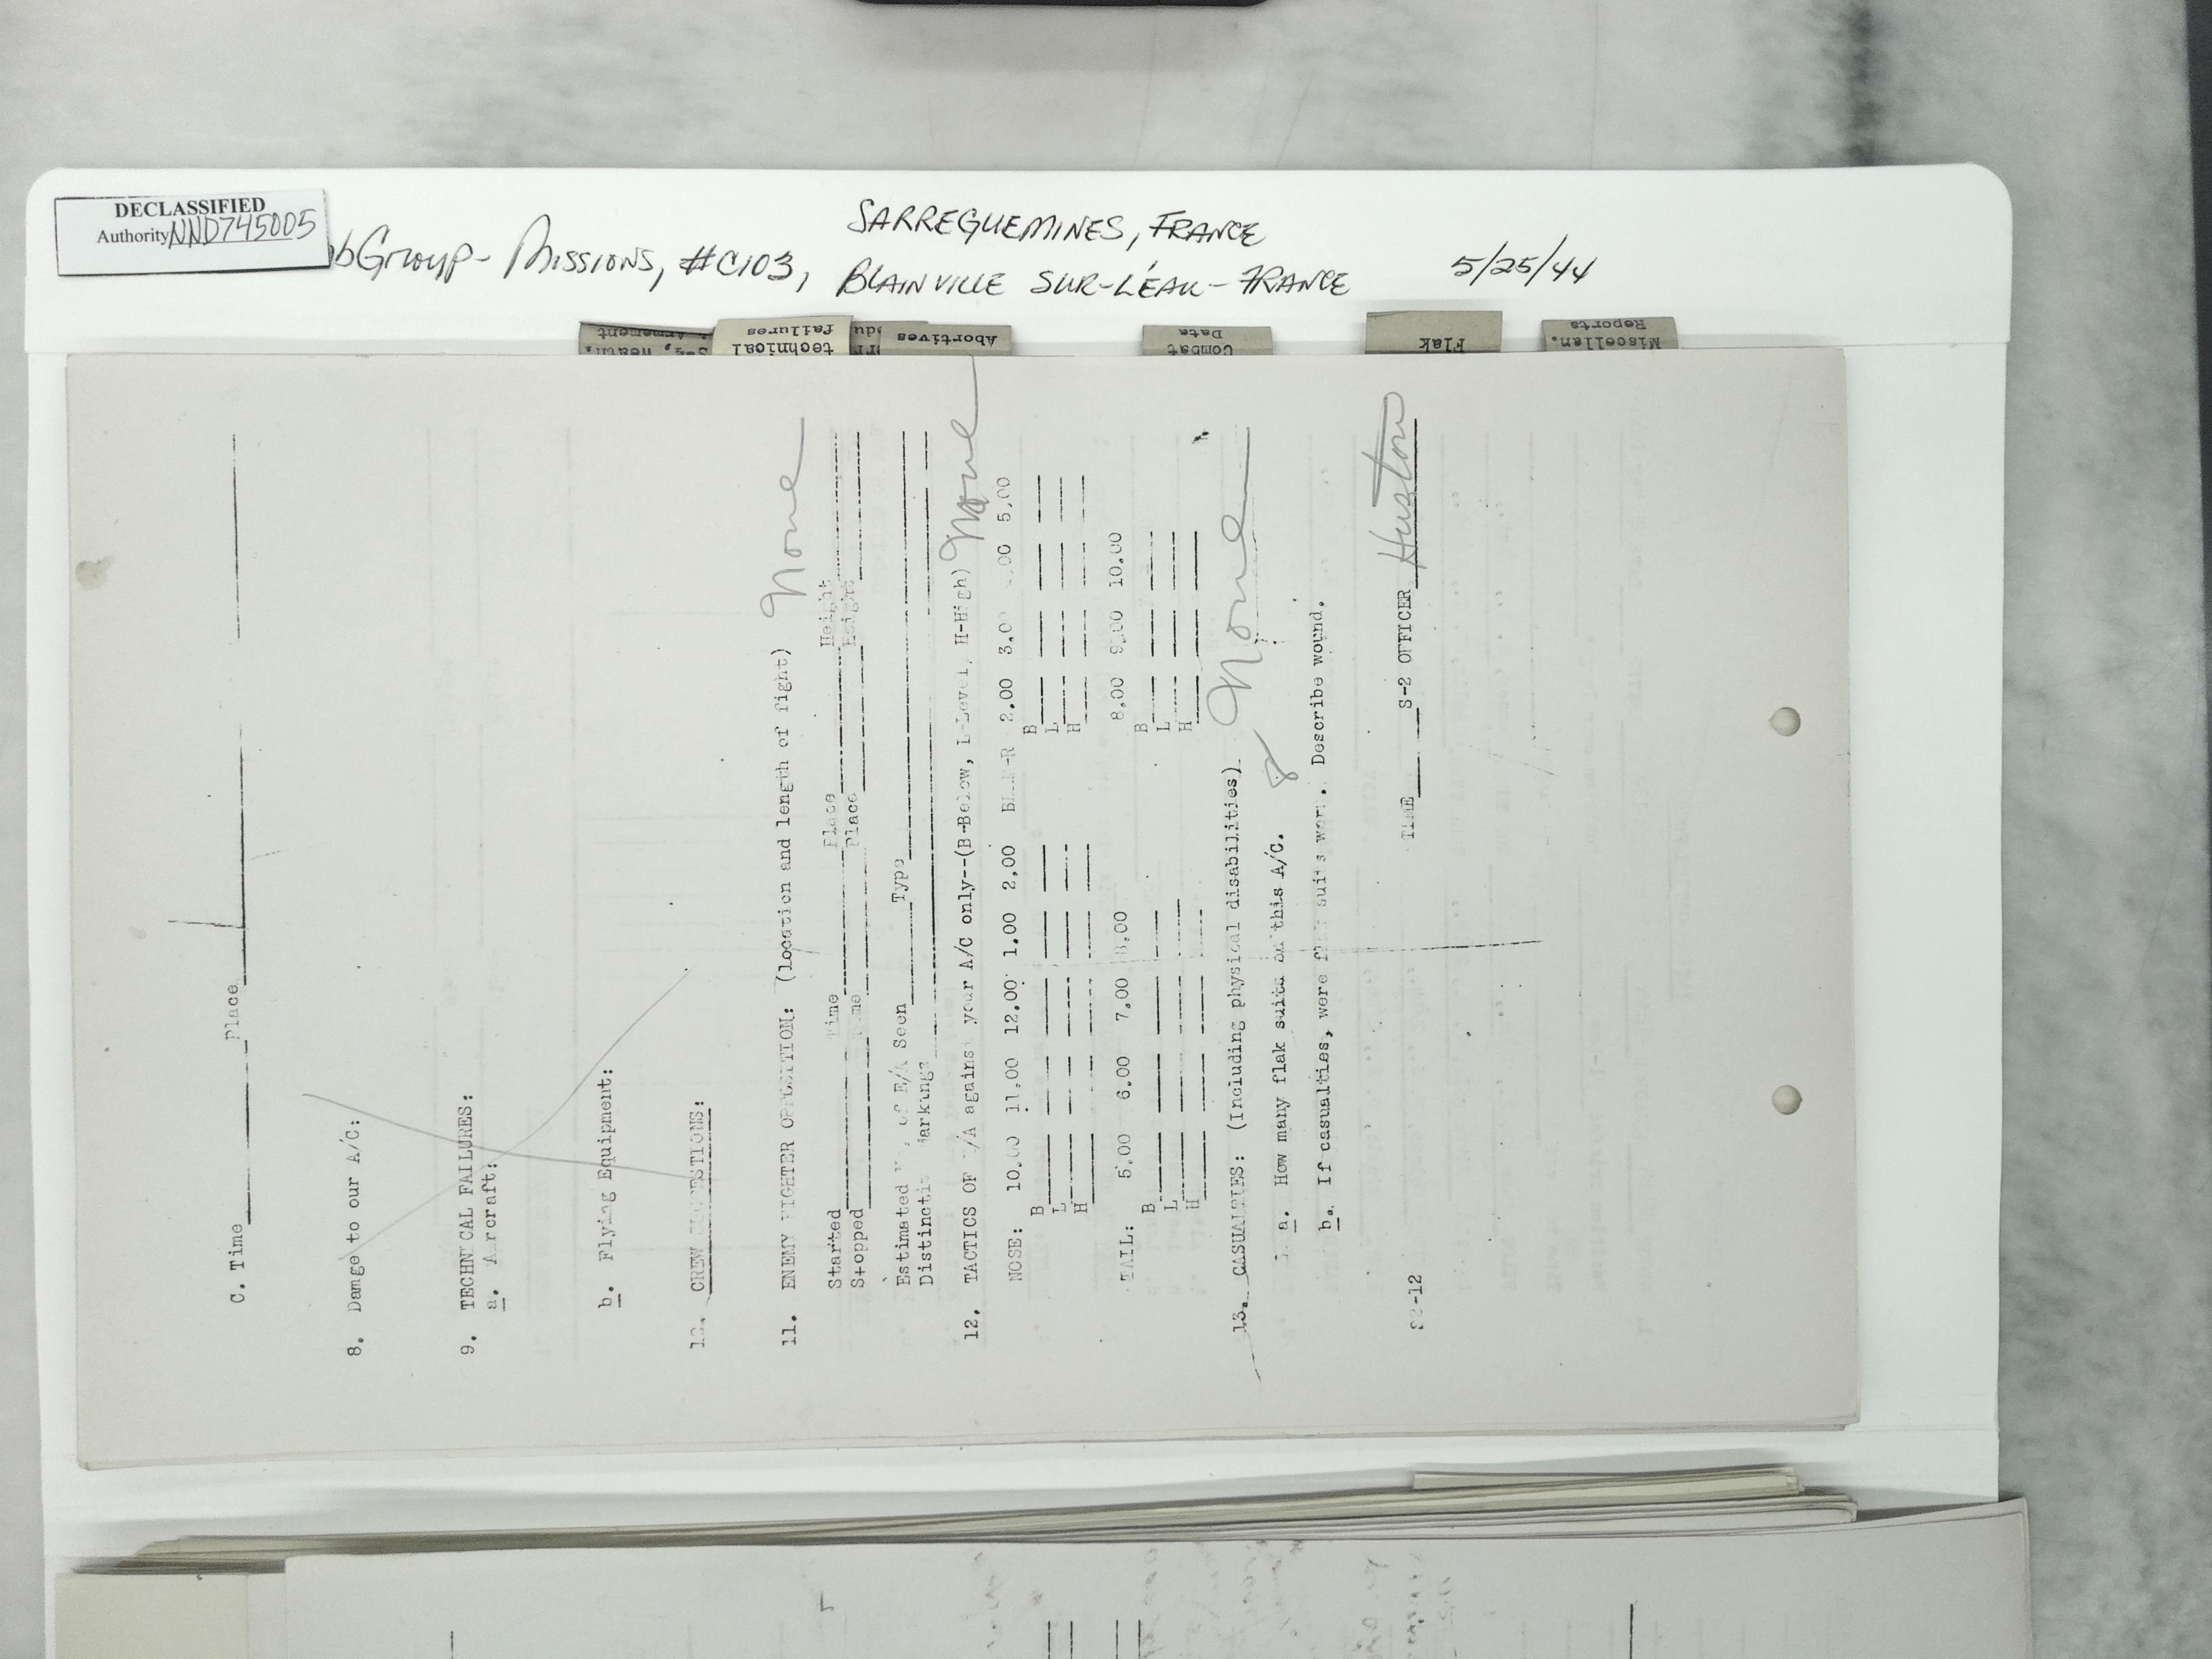 DECLASSIFIED
Authority NND745005
bGroup - Missions, #C103,
SARREGUEMINES, FRANCE
BLAINVILLE SUR-L'EAU - FRANCE
5/25/44
technical
failures
Abortives
Combat
Data
Flak
Miscellan.
Reports
C. Time Place
8. Damage to our A/C:
9. TECHNICAL FAILURES:
a. Aircraft:
b. Flying Equipment:
10. CREW SUGGESTIONS:
11. ENEMY FIGHTER OPPOSITION: (location and length of fight) None
Started Time Place Height
Stopped Time Place Height
Estimated of E/A Seen Type
Distinctive Markings
12. TACTICS OF E/A against your A/C only--(B-Below, L-Level, H-High) None
NOSE: 10.00 11.00 12.00 1.00 2.00 2.00 3.00 5.00
B B
L L
H H
TAIL: 5.00 6.00 7.00 8.00 8.00 9.00 10.00
B B
L L
H H
13. CASUALTIES: (Including physical disabilities) None
a. How many flak suits on this A/C. 8
b. If casualties, were flak suits worn. Describe wound.
TIME S-2 OFFICER Huston
-12